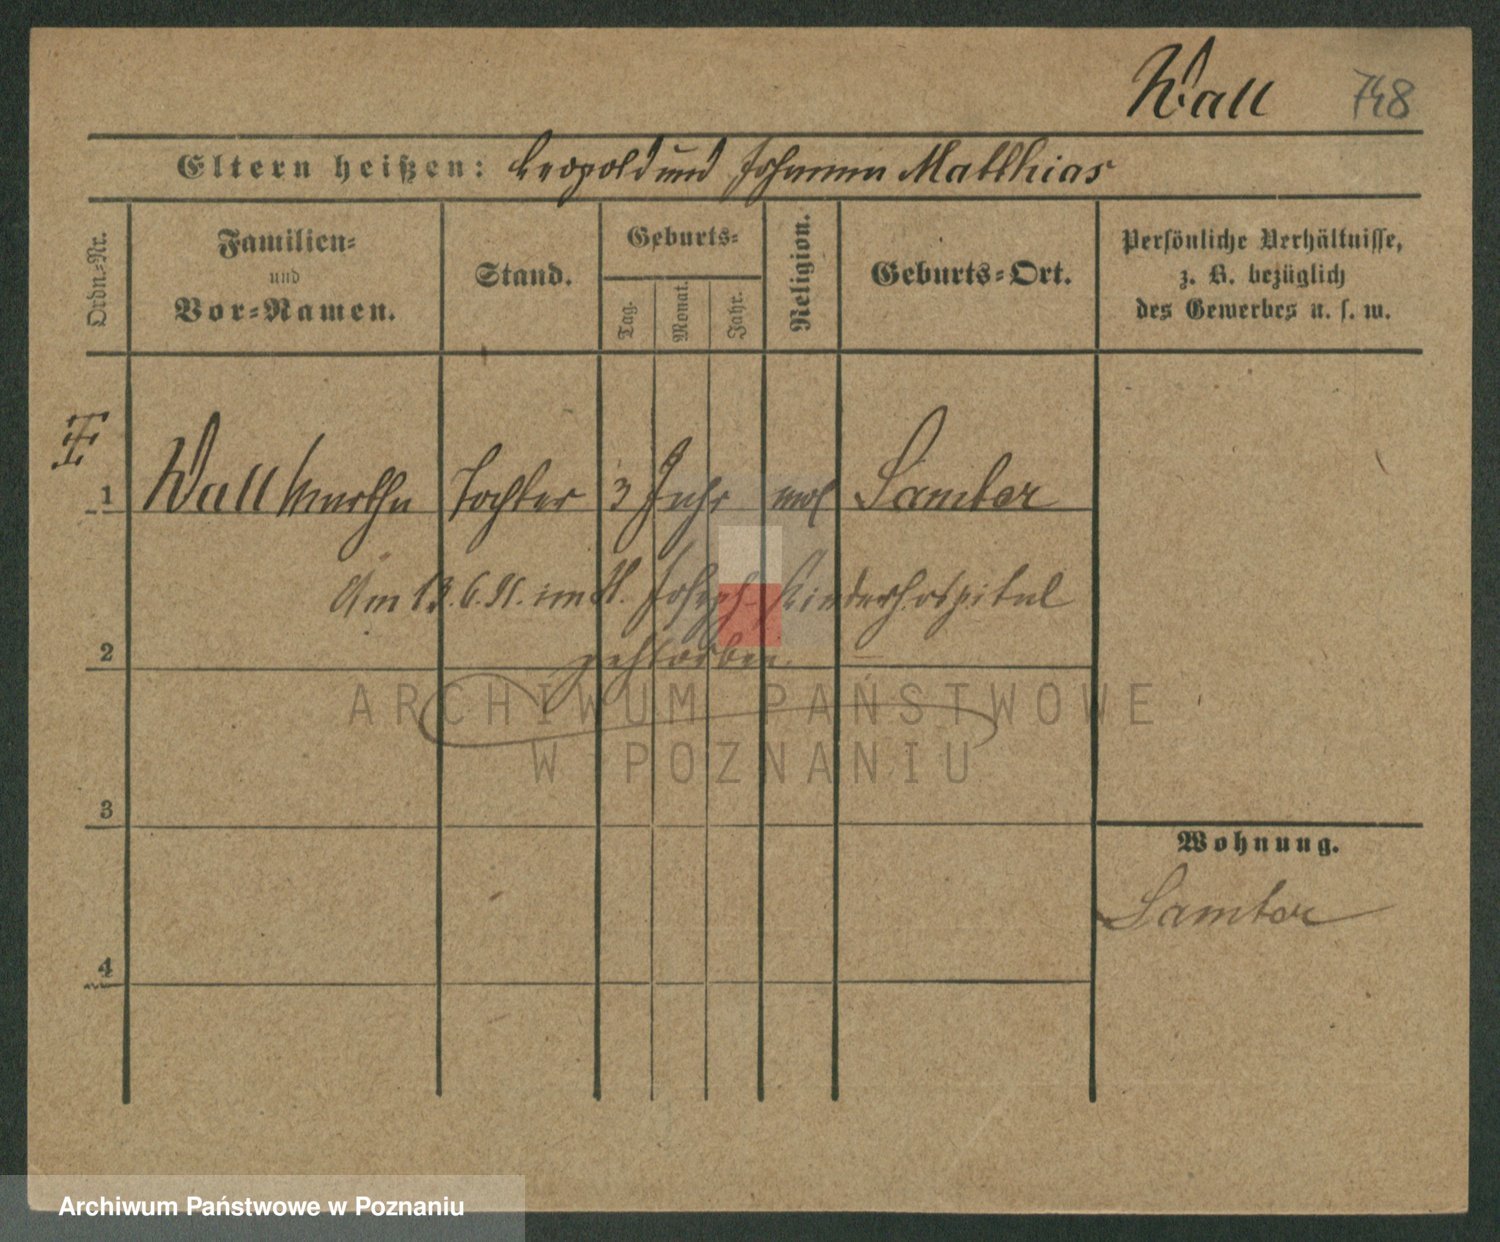 Wall 748
Eltern heißen: Leopold und Johanna Matthias
Ordn.-Nr.
Familien-
und
Vor-Namen.
Stand.
Geburts-
Tag.
Monat.
Jahr.
Religion.
Geburts-Ort.
Persönliche Verhältnisse,
z. B. bezüglich
des Gewerbes u. s. w.
1 Wall Martha Tochter 3 Jahr mos Samter
Am 13.6.91. im St. Joseph-Kinderhospital
2 gestorben.
3
4
Wohnung.
Samter
ARCHIWUM PAŃSTWOWE
W POZNANIU
Archiwum Państwowe w Poznaniu